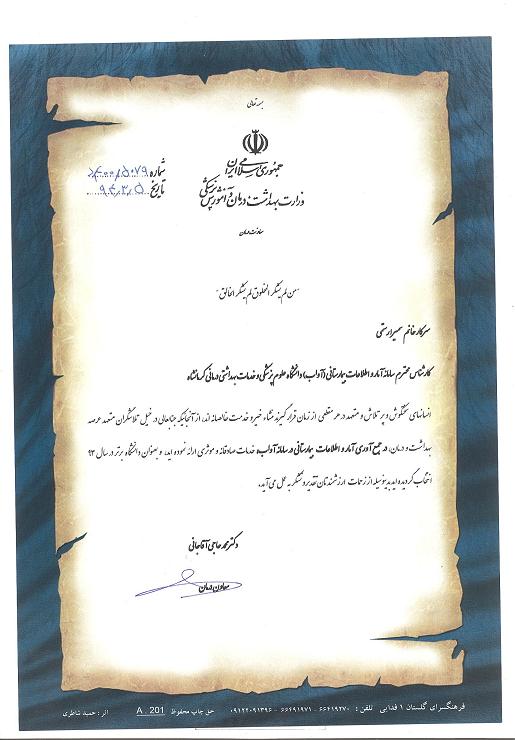 بسمه تعالی
شماره ۴۰۰/۵۰۷۹
جمهوری اسلامی ایران
تاریخ ۹۴،۳،۵
وزارت بهداشت، درمان و آموزش پزشکی
معاونت درمان
"من لم یشکر المخلوق لم یشکر الخالق"
سرکار خانم سمیرا رستمی
کارشناس محترم سامانه آمار و اطلاعات بیمارستانی (آواب) دانشگاه علوم پزشکی و خدمات بهداشتی درمانی کرمانشاه
انسانهای سختکوش و پرتلاش و متعهد در هر مقطعی از زمان قرار گیرند منشاء خیر و خدمت خالصانه اند، از آنجائیکه جنابعالی در خیل تلاشگران متعهد عرصه
بهداشت و درمان، در جمع آوری آمار و اطلاعات بیمارستانی در سامانه آواب، خدمات صادقانه و موثری ارائه نموده اید، و بعنوان دانشگاه برتر در سال ۹۳
انتخاب گردیده اید بدینوسیله از زحمات ارزشمندتان تقدیر و تشکر به عمل می آید.
دکتر محمد حاجی آقاجانی
معاون درمان
فرهنگسرای گلستان ۱ فدایی تلفن : ۶۶۴۱۹۲۷۰ - ۶۶۴۹۱۹۷۱ - ۰۹۱۲۲۰۹۱۳۹۶ حق چاپ محفوظ A . 201 اثر : حمید شاطری